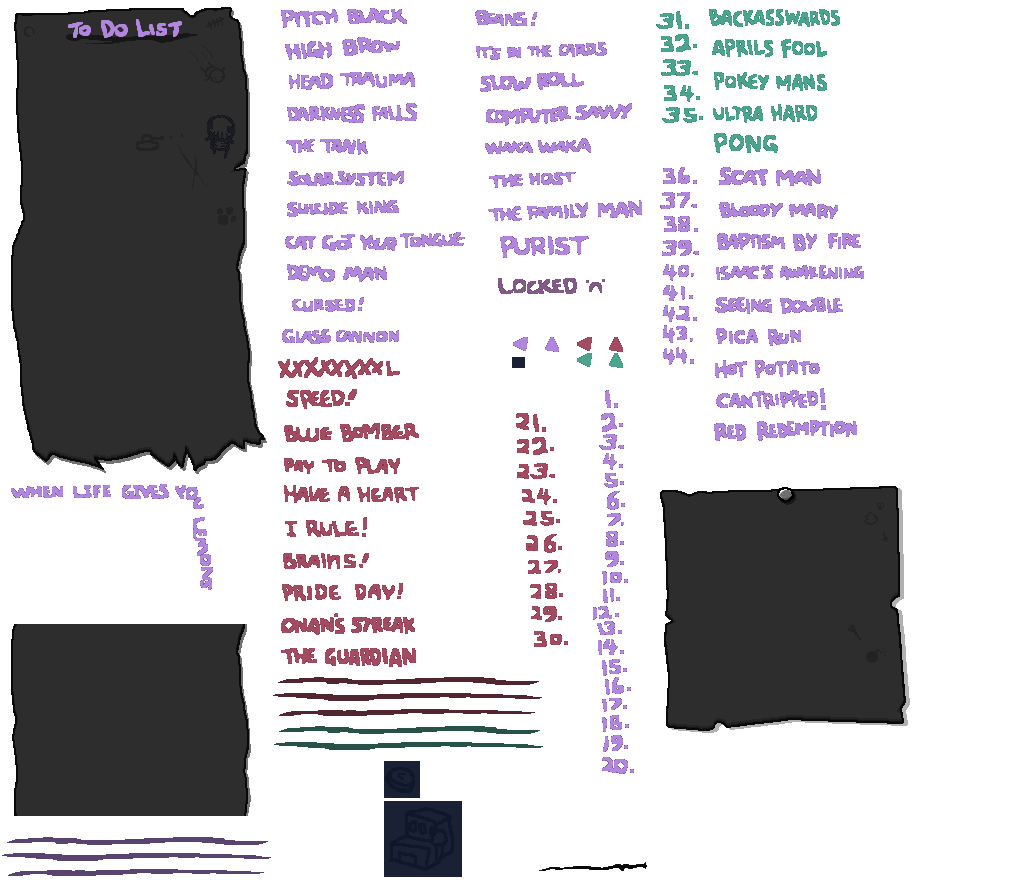 TO DO LIST
PITCH BLACK
HIGH BROW
HEAD TRAUMA
DARKNESS FALLS
THE TANK
SOLAR SYSTEM
SUICIDE KING
CAT GOT YOUR TONGUE
DEMO MAN
CURSED!
GLASS CANNON
XXXXXXXXL
SPEED!
BLUE BOMBER
PAY TO PLAY
HAVE A HEART
I RULE!
BRAINS!
PRIDE DAY!
ONAN'S STREAK
THE GUARDIAN
WHEN LIFE GIVES YOU LEMONS
BEANS!
IT'S IN THE CARDS
SLOW ROLL
COMPUTER SAVVY
WAKA WAKA
THE HOST
THE FAMILY MAN
PURIST
LOCKED 'n'
21.
22.
23.
24.
25.
26.
27.
28.
29.
30.
1.
2.
3.
4.
5.
6.
7.
8.
9.
10.
11.
12.
13.
14.
15.
16.
17.
18.
19.
20.
31.
32.
33.
34.
35.
36.
37.
38.
39.
40.
41.
42.
43.
44.
BACKASSWARDS
APRILS FOOL
POKEY MANS
ULTRA HARD
PONG
SCAT MAN
BLOODY MARY
BAPTISM BY FIRE
ISAAC'S AWAKENING
SEEING DOUBLE
PICA RUN
HOT POTATO
CANTRIPPED!
RED REDEMPTION